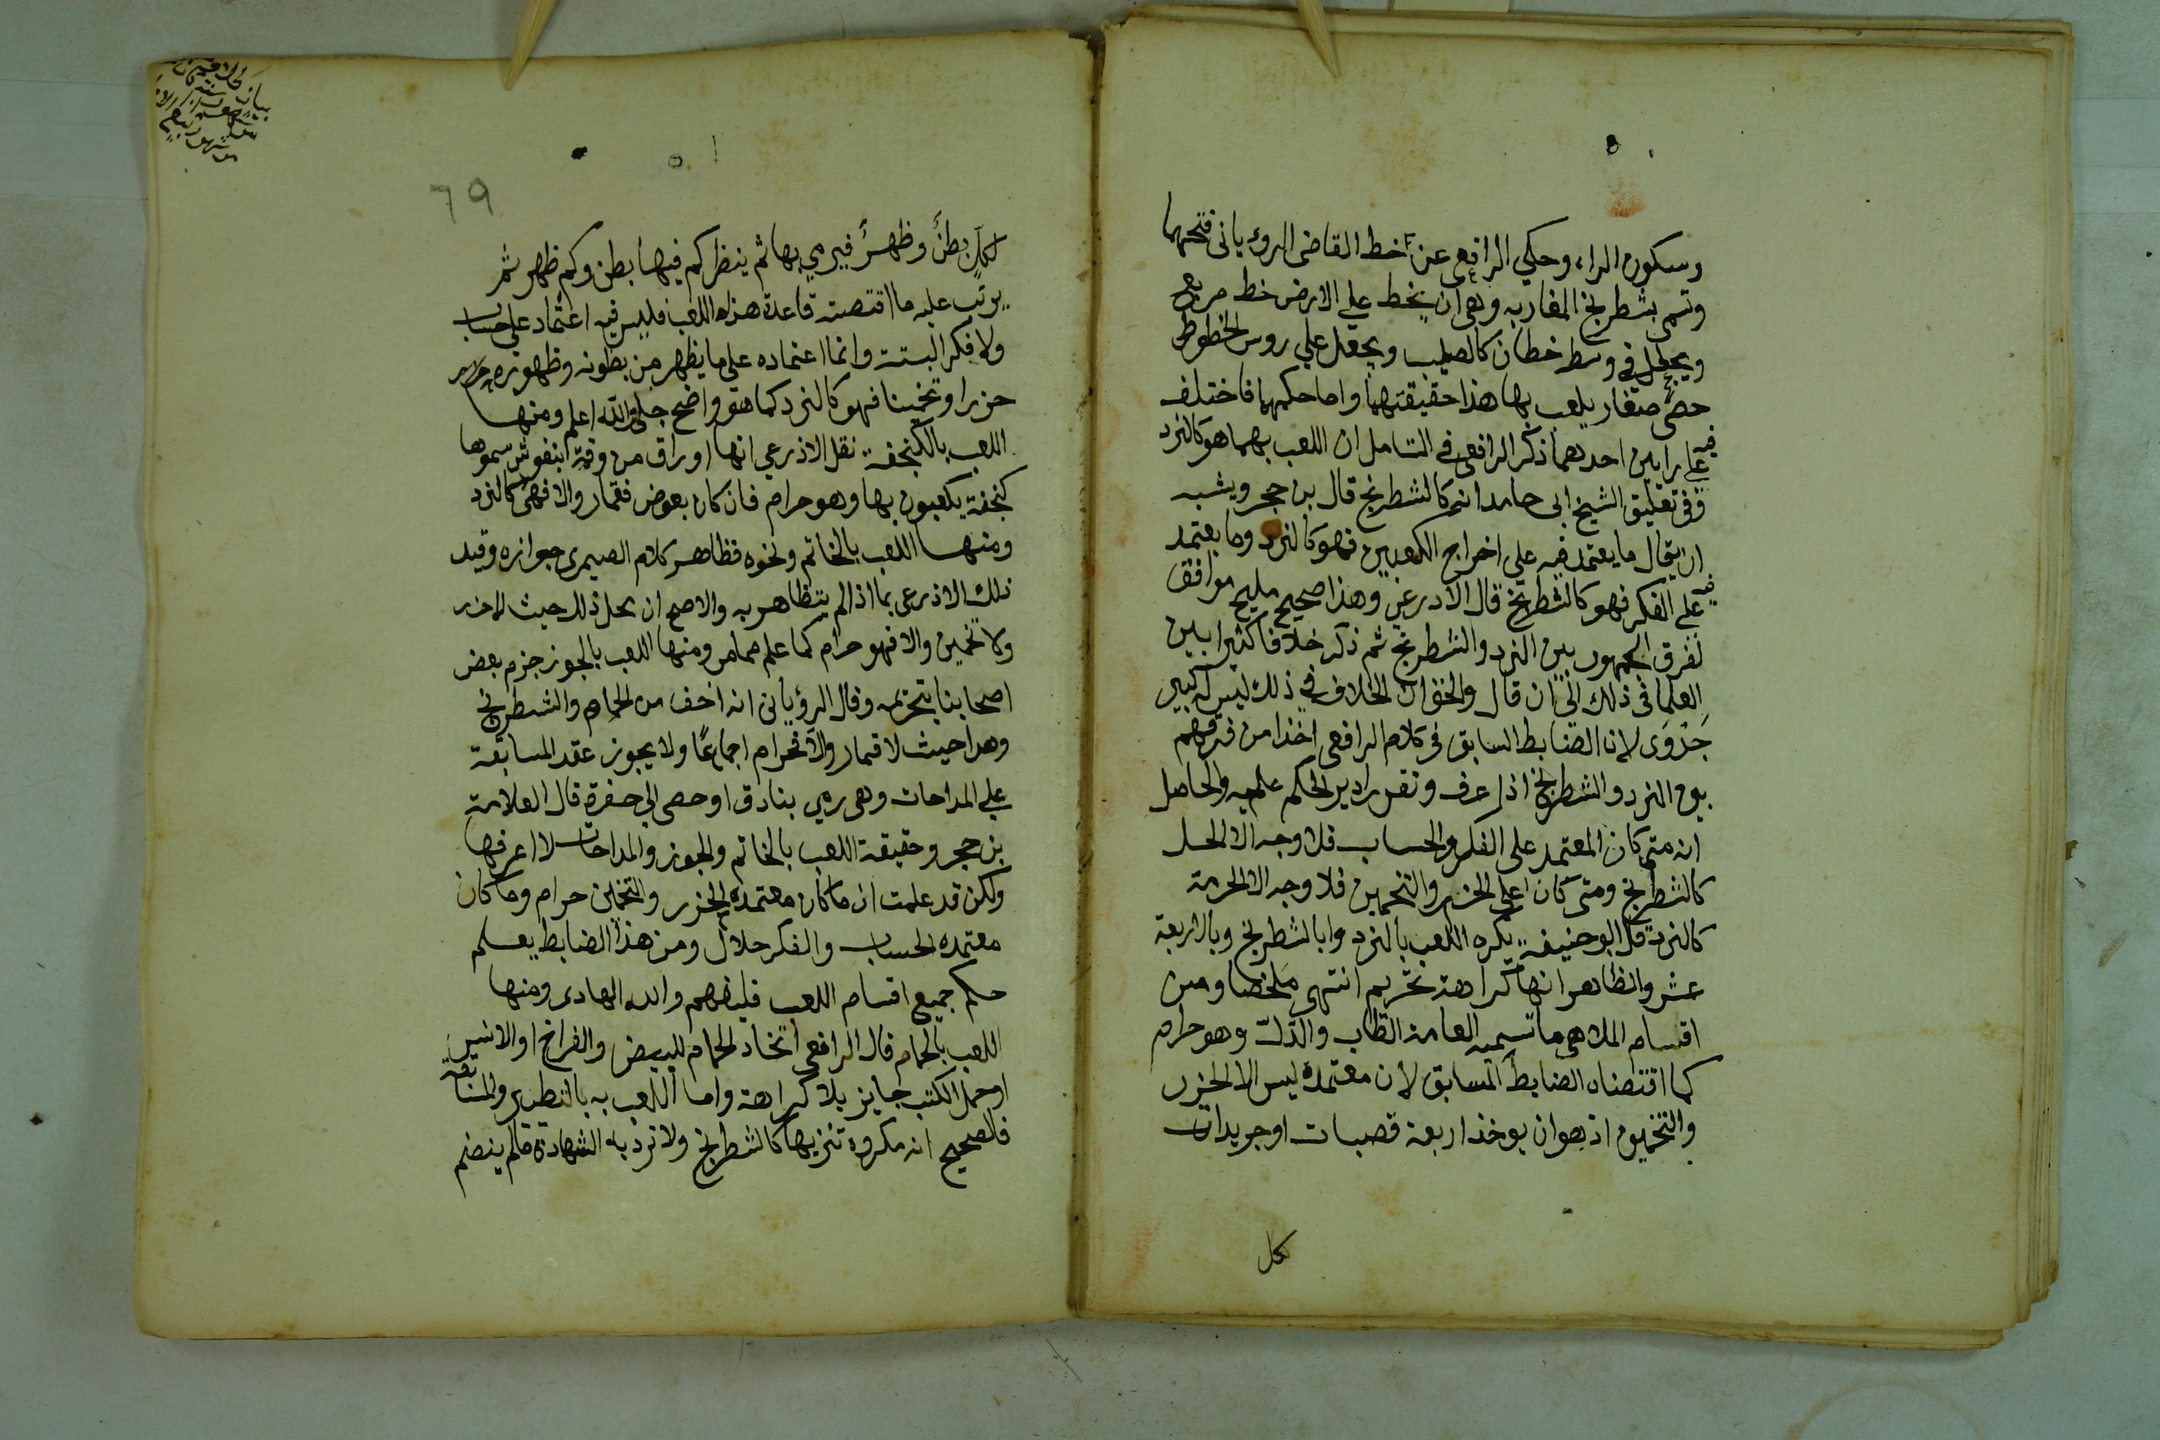 وسكون الراء وحكي الرافعي عن خط القاضي الروياني فتحهما
وتسمى بشطرنج المغاربه وهي ان يخط علي الارض خط مربع
ويجعل في وسطه خطان كالصليب ويجعل علي روس الخطوط
حصى صغار يلعب بها هذا حقيقتهما واما حكمهما فاختلف
فيه علي رايين احدهما ذكر الرافعي في الشامل ان اللعب بهما هو كالنرد
وفي تعليق الشيخ ابي حامد انه كالشطرنج قال بن حجر ويشبه
ان يقال ما يعتمد فيه على اخراج الكعبين فهو كالنرد وما يعتمد
فيه علي الفكر فهو كالشطرنج قال الاذرعي وهذا صحيح مليح موافق
لفرق الجمهور بين النرد والشطرنج ثم ذكر خلافا كثيرا بين
العلما في ذلك الي ان قال والحق ان الخلاف في ذلك ليس له كبير
جَدْوَى لان الضابط السابق في كلام الرافعي اخذا من فرقهم
بين النرد والشطرنج اذا عرف وتقرر ادير الحكم عليه والحاصل
انه متى كان المعتمد على الفكر والحساب فلا وجه الا الحل
كالشطرنج ومتى كان على الحزر والتخمين فلا وجه الا الحرمة
كالنرد قال ابو حنيفة يكره اللعب بالنرد وبالشطرنج وبالاربعة
عشر والظاهر انها كراهة تحريم انتهى ملخصا ومن
اقسام الملاهي ما تسميه العامة الطاب والدك وهو حرام
كما اقتضاه الضابط السابق لان معتمده ليس الا الحزر
والتخمين اذ هو ان يوخذ اربعة قصبات او جريدات
لكل
٦٩
لكل بطن وظهر فيرمي بها ثم ينظر كم فيها بطن وكم ظهر ثم
يرتب عليه ما اقتضته قاعدة هذا اللعب فليس فيه اعتماد على حساب
ولا فكر البتة وانما اعتماده على ما يظهر من بطونه وظهوره
حزرا وتخمينا فهو كالنرد كما هو واضح جلي والله اعلم ومنها
اللعب بالكنجفة نقل الاذرعي انها اوراق مزوقة بنقوش سموها
كنجفة يلعبون بها وهو حرام فان كان بعوض فقمار والا فهي كالنرد
ومنها اللعب بالخاتم ونحوه فظاهر كلام الصيمري جوازه وقيد
ذلك الاذرعي بما اذا لم يتظاهر به والاصح ان يحل ذلك حيث لا حزر
ولا تخمين والا فهو حرام كما علم مما مر ومنها اللعب بالجوز جزم بعض
اصحابنا بتحريمه وقال الروياني انه اخف من الحمام والشطرنج
وهذا حيث لا قمار والا فحرام اجماعًا ولا يجوز عقد المسابقة
علي المداحات وهي رمي بنادق او حصى الي حفرة قال العلامة
بن حجر وحقيقة اللعب بالخاتم والجوز والمداحات لا اعرفها
ولكن قد علمت ان ما كان معتمده الحزر والتخمين حرام وما كان
معتمده الحساب والفكر حلال ومن هذا الضابط يعلم
حكم جميع اقسام اللعب فليفهم والله الهادي ومنها
اللعب بالحمام قال الرافعي اتخاذ الحمام للبيض والفراخ او الانس
او حمل الكتب جايز بلا كراهة واما اللعب به بالتطير والمسابقة
فالصحيح انه مكروه تنزيها كالشطرنج ولا ترد به الشهادة فلم ينضم